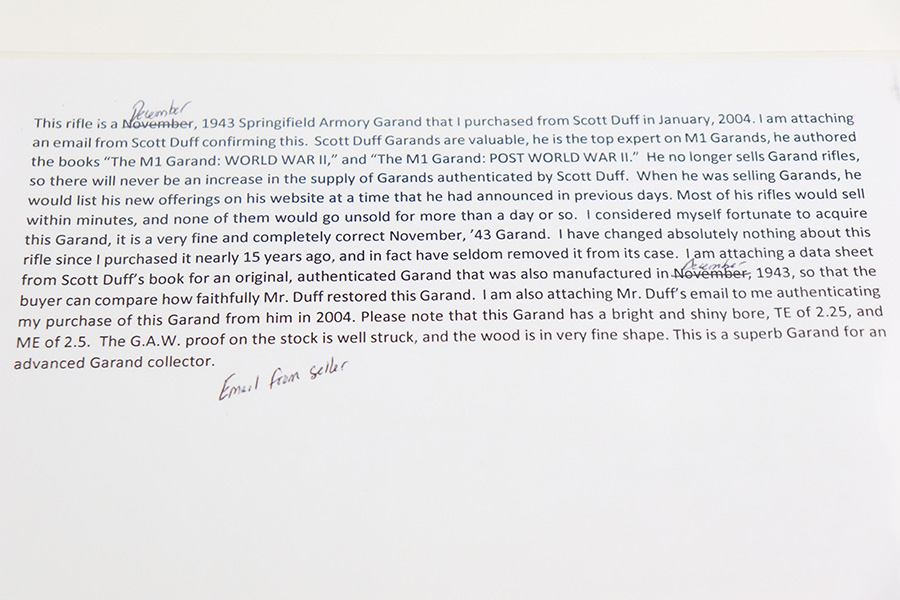 December
This rifle is a November, 1943 Springifield Armory Garand that I purchased from Scott Duff in January, 2004. I am attaching
an email from Scott Duff confirming this. Scott Duff Garands are valuable, he is the top expert on M1 Garands, he authored
the books “The M1 Garand: WORLD WAR II,” and “The M1 Garand: POST WORLD WAR II.” He no longer sells Garand rifles,
so there will never be an increase in the supply of Garands authenticated by Scott Duff. When he was selling Garands, he
would list his new offerings on his website at a time that he had announced in previous days. Most of his rifles would sell
within minutes, and none of them would go unsold for more than a day or so. I considered myself fortunate to acquire
this Garand, it is a very fine and completely correct November, ’43 Garand. I have changed absolutely nothing about this
rifle since I purchased it nearly 15 years ago, and in fact have seldom removed it from its case. I am attaching a data sheet
December
from Scott Duff’s book for an original, authenticated Garand that was also manufactured in November, 1943, so that the
buyer can compare how faithfully Mr. Duff restored this Garand. I am also attaching Mr. Duff’s email to me authenticating
my purchase of this Garand from him in 2004. Please note that this Garand has a bright and shiny bore, TE of 2.25, and
ME of 2.5. The G.A.W. proof on the stock is well struck, and the wood is in very fine shape. This is a superb Garand for an
advanced Garand collector.
Email from seller